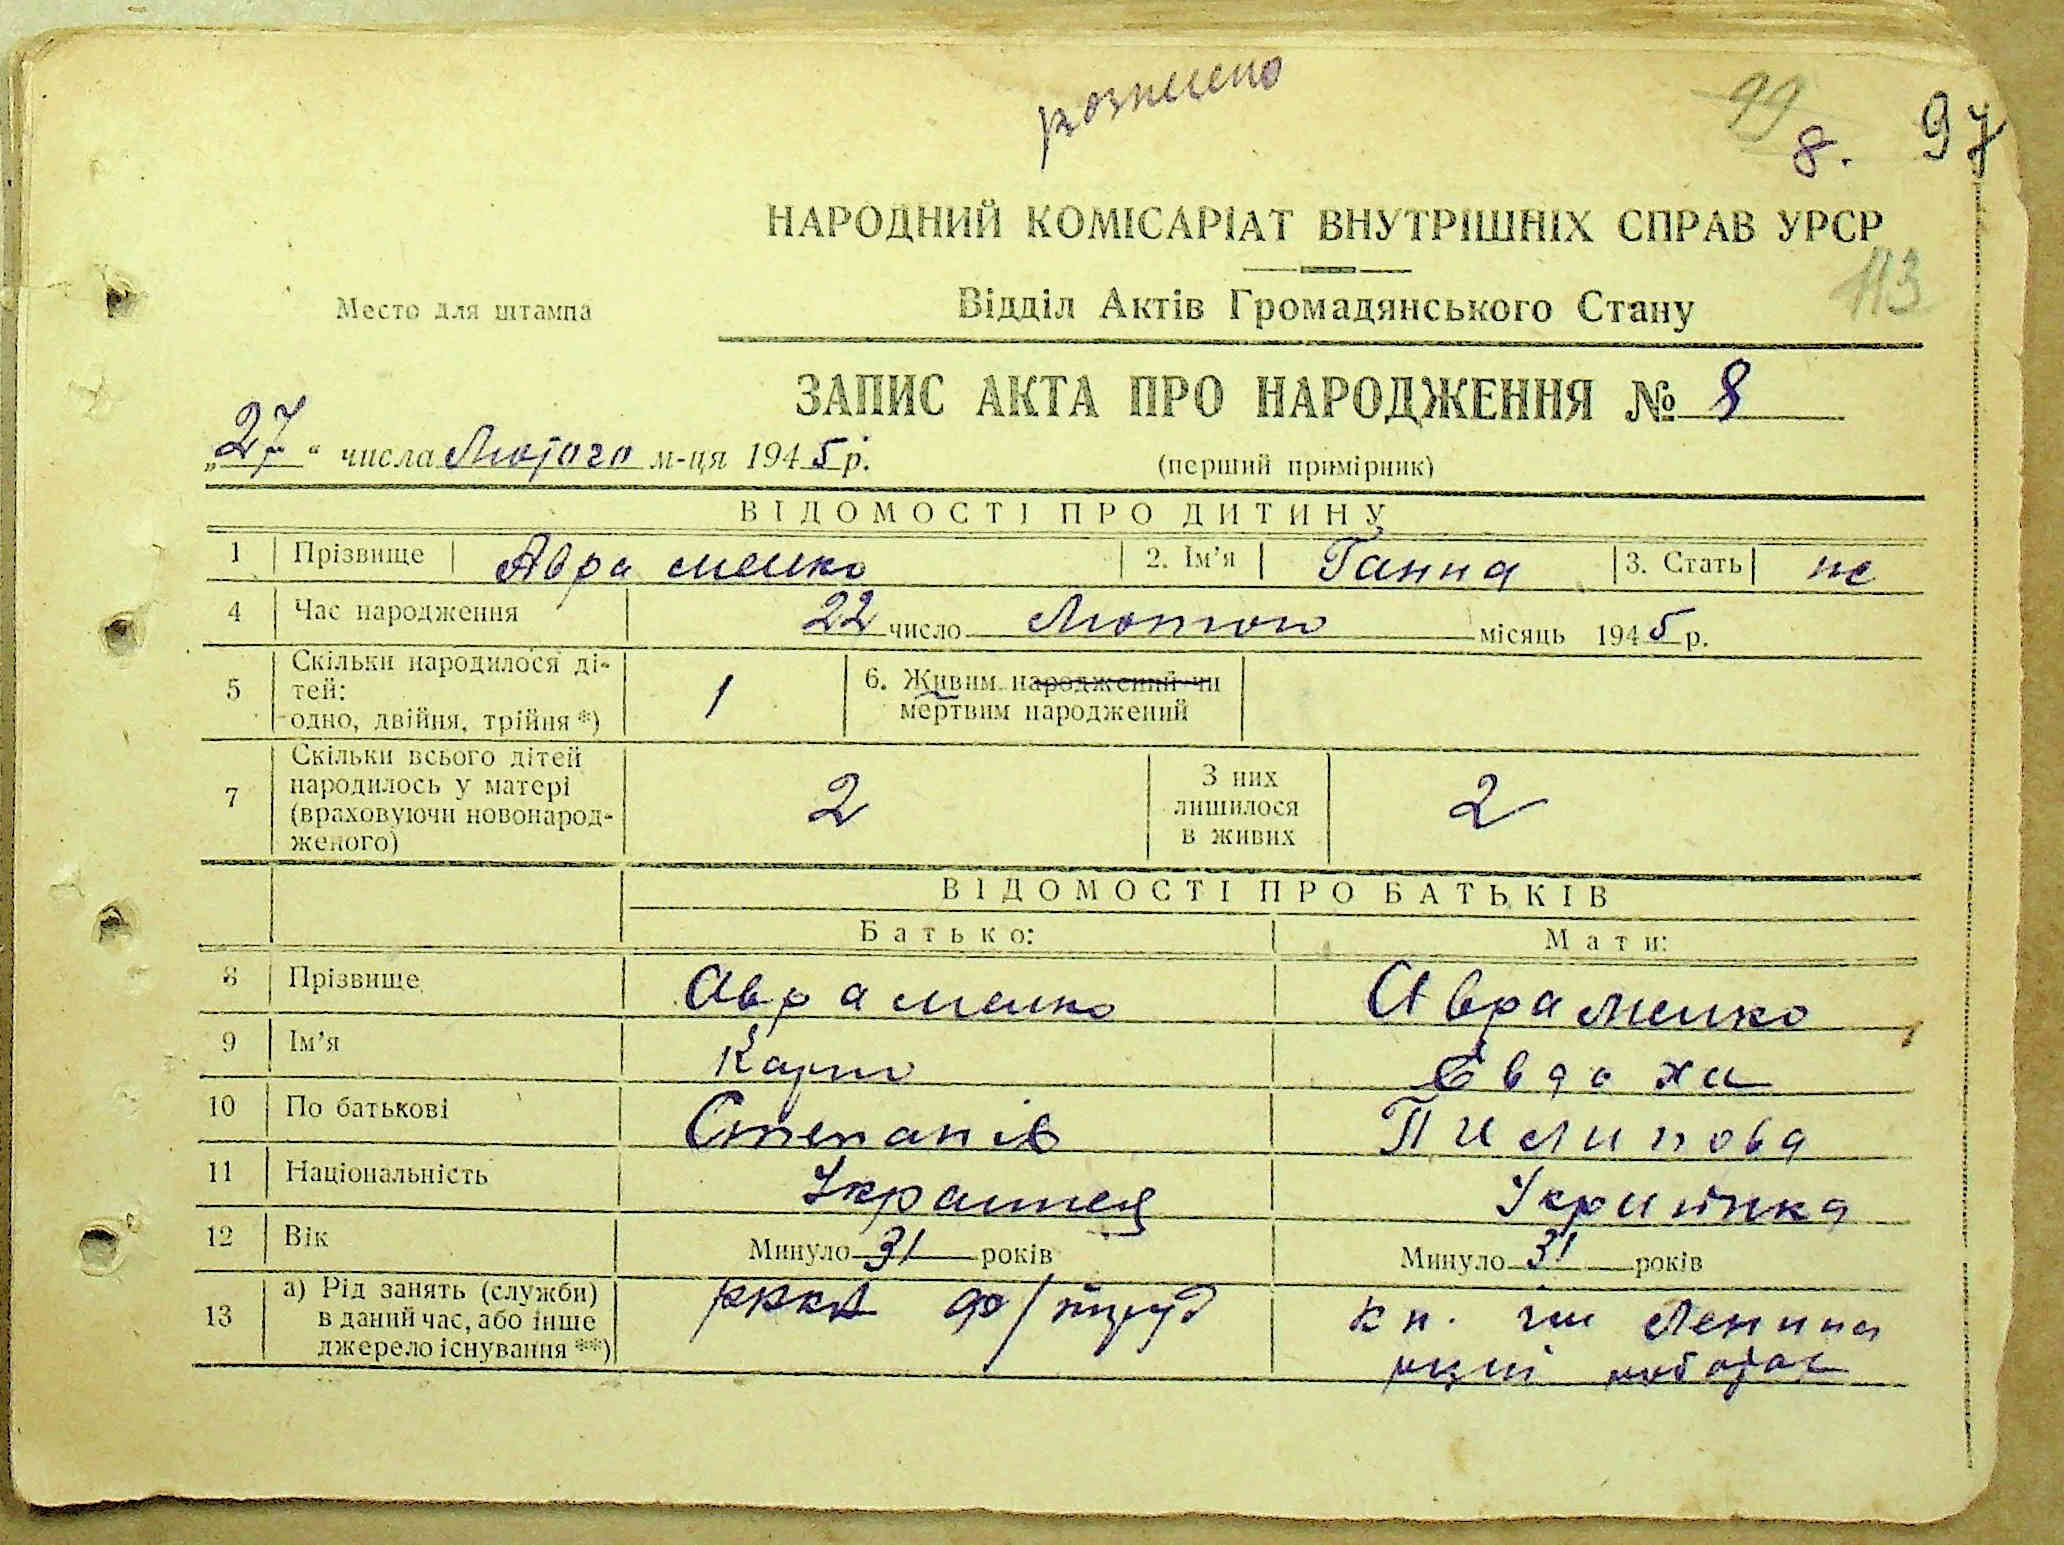 рознесено
99
8.
97
НАРОДНИЙ КОМІСАРІАТ ВНУТРІШНІХ СПРАВ УРСР
113
Место для штампа
Відділ Актів Громадянського Стану
ЗАПИС АКТА ПРО НАРОДЖЕННЯ № 8
„27“ числа Лютого м-ця 1945 р.
(перший примірник)
ВІДОМОСТІ ПРО ДИТИНУ
1 Прізвище Авраменко 2. Ім'я Ганна 3. Стать ж
4 Час народження 22 число Лютого місяць 1945 р.
5 Скільки народилося ді-
тей:
одно, двійня, трійня *) 1
6. Живим народжений чи
мертвим народжений
7 Скільки всього дітей
народилось у матері
(враховуючи новонарод-
женого) 2
З них
лишилося
в живих 2
ВІДОМОСТІ ПРО БАТЬКІВ
Батько: Мати:
8 Прізвище Авраменко Авраменко
9 Ім'я Карпо Євдоха
10 По батькові Степанів Пилипова
11 Національність Українец Українка
12 Вік Минуло 31 років Минуло 31 років
13 а) Рід занять (служби)
в даний час, або інше
джерело існування **)
РККА
кл. ім Леніна